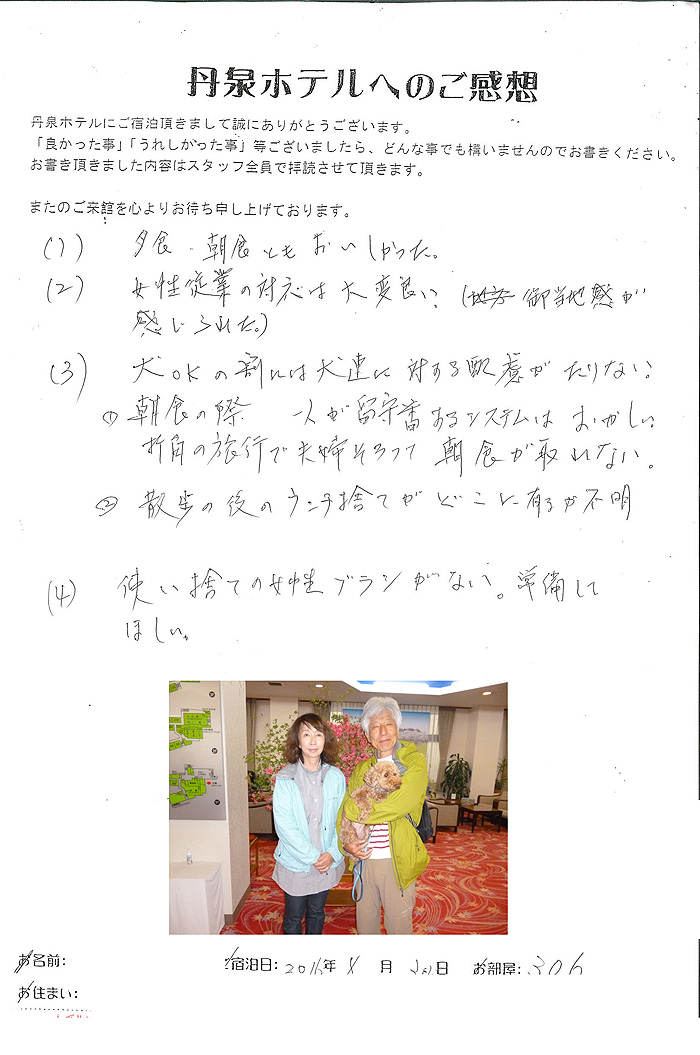 丹泉ホテルへのご感想
丹泉ホテルにご宿泊頂きまして誠にありがとうございます。
「良かった事」「うれしかった事」等ございましたら、どんな事でも構いませんのでお書きください。
お書き頂きました内容はスタッフ全員で拝読させて頂きます。
またのご来館を心よりお待ち申し上げております。
(1) 夕食・朝食ともおいしかった。
(2) 女性従業の対応は大変良い (御当地感が
感じられた。)
(3) 犬OKの割には犬連に対する配慮がたりない
① 朝食の際 一人が留守番するシステムはおかしい
折角の旅行で夫婦そろって朝食が取れない。
② 散歩の後のウンチ捨てがどこに有るか不明
(4) 使い捨ての女性ブラシがない。準備して
ほしい。
お名前:
ご宿泊日: 2016年 月 日 お部屋: 306
お住まい: